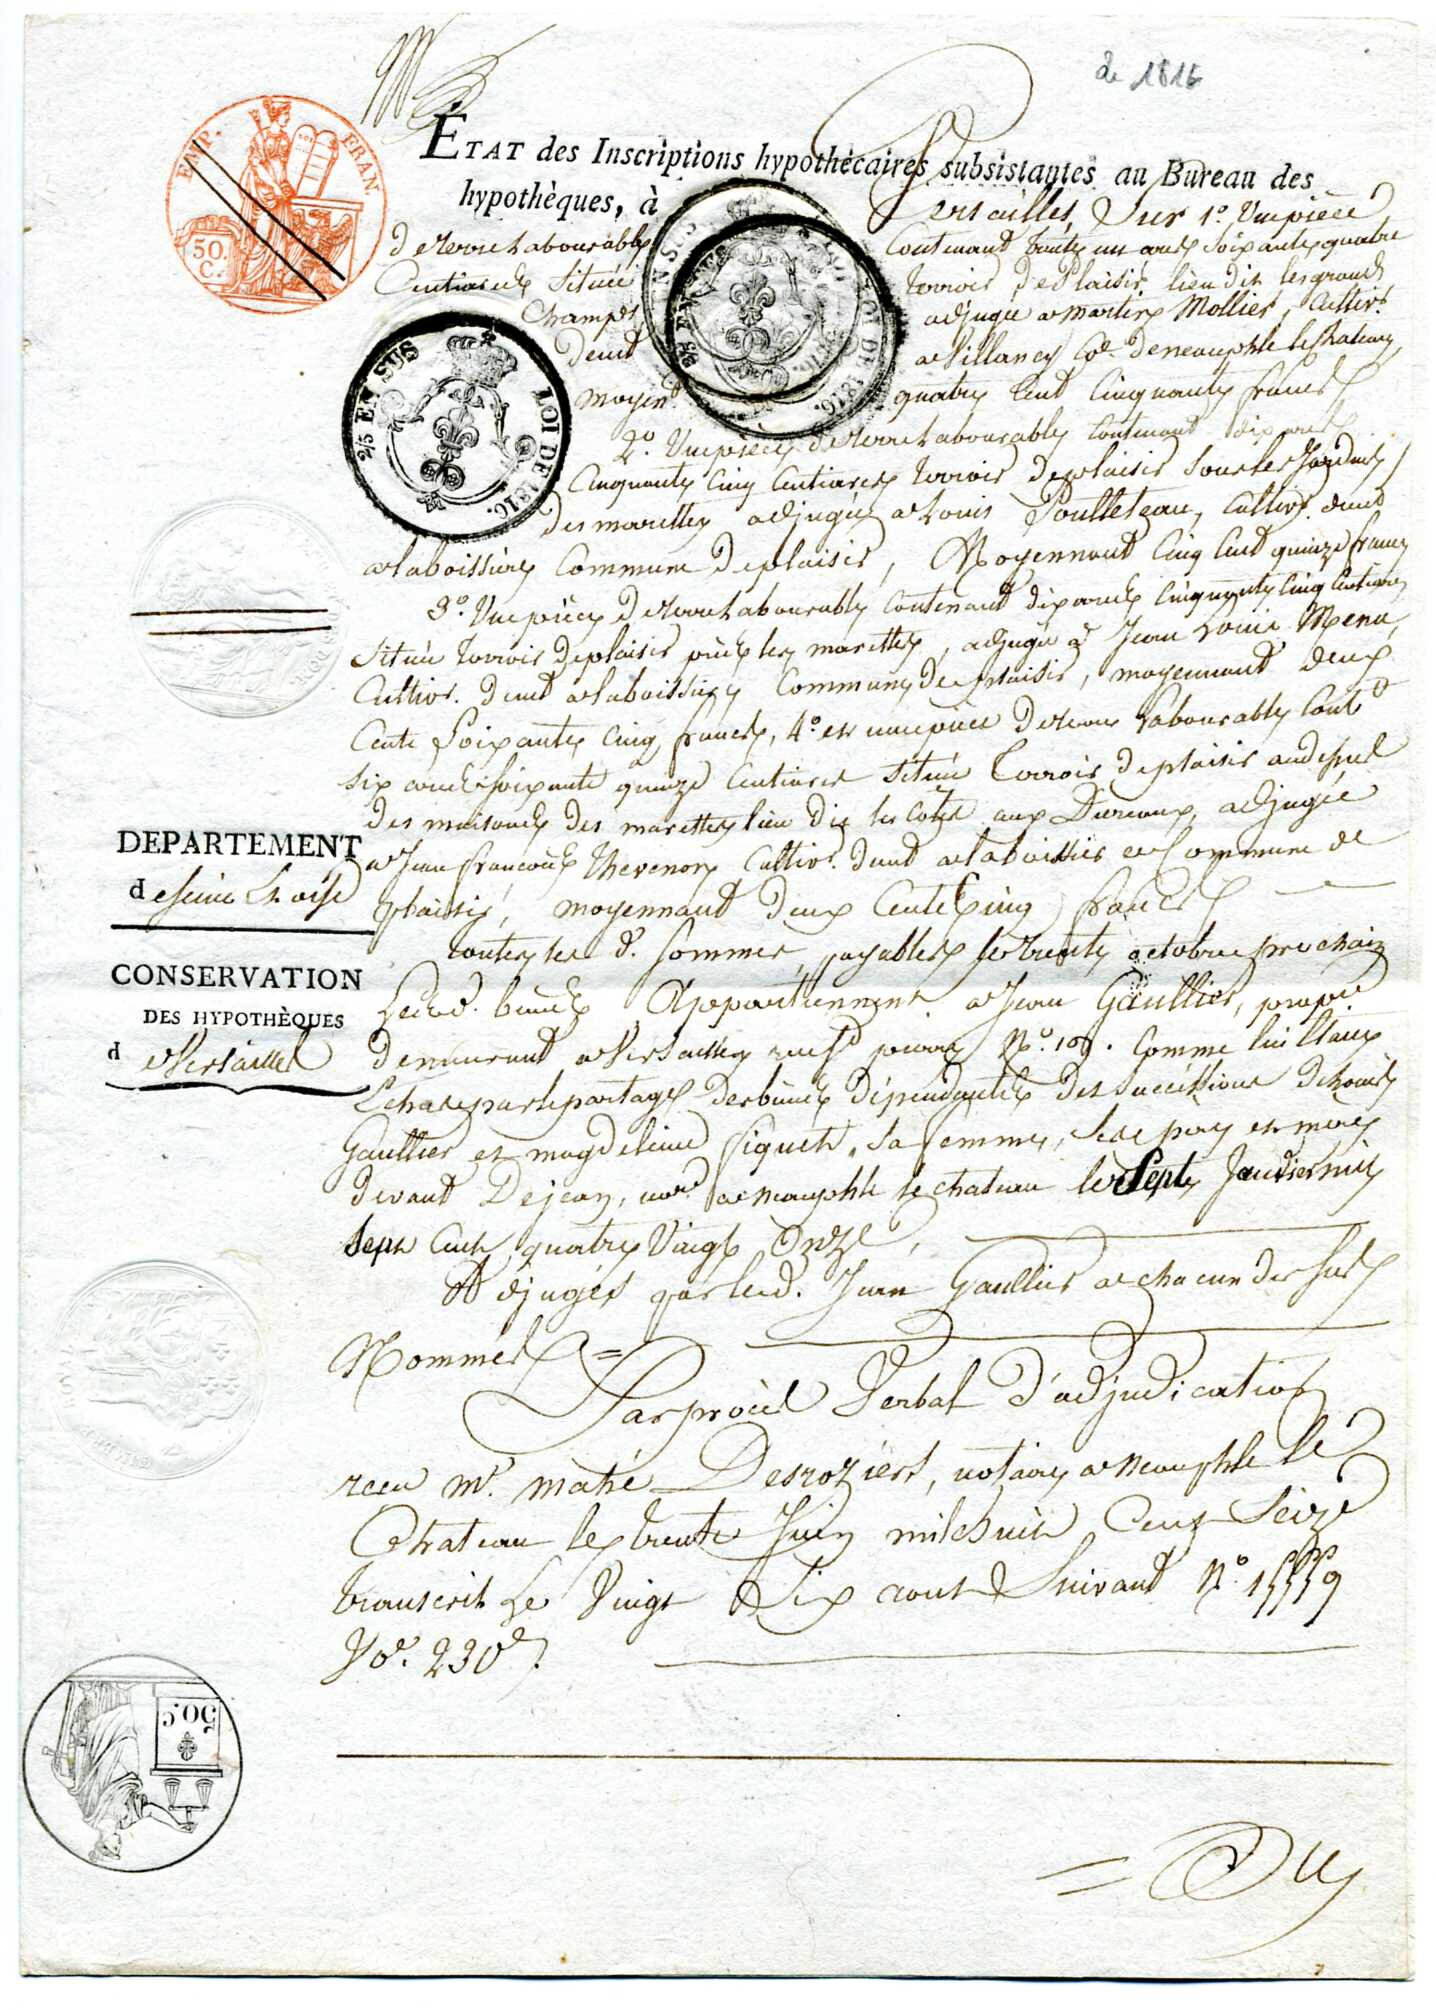 de 1816
EMP. FRAN
50. C.
ETAT des Inscriptions hypothécaires subsistantes au Bureau des
hypothèques, à Versailles, Sur 1º. Une pièce
de terre Labourable Contenant trente un ares Soixante quatre
Centiares Située terroir de Plaisir, lieu dit les grands
Champs adjugée a martin Mollier, Cultivr.
demt a Villancy Cne. de neauphle le chateau,
moyent. quatre Cent Cinquante francs
2/5 EN SUS LOI DE 1816.
2/5 EN SUS LOI DE 1816.
2º. Une pièce de terre Labourable Contenant dix ares
Cinquante Cinq Centiares terroir de plaisir Sous les Jardins
des marettes adjugée a Louis Poulleteau, Cultivr. demt
a la boissiere Commune de plaisir, Moyennant Cinq Cent quinze francs
3º. Une pièce de terre Labourable Contenant dix ares Cinquante Cinq Centiares
Située terroir de plaisir près les marettes, adjugée a Jean Louis Menu,
Cultivr. demt a la boissiere Commune de plaisir, moyennant deux
Cents Soixante Cinq francs, 4º. et une pièce de terre Labourable Contt
six ares Soixante quinze Centiares Située terroir de plaisir au dessus
des maisons des marettes lieu dit les Côtes aux Dureaux, adjugée
a Jean françois Thevenon, Cultivr. demt a la boissiere Commune de
plaisir, moyennant deux Cents Cinq francs
DEPARTEMENT
de Seine et oise
toutes les d. Sommes, payables le trente octobre prochain
CONSERVATION
DES HYPOTHÈQUES
de Versailles
Lesd. biens appartiennent a Jean Gaullier, propre
demeurant a Versailles rue St pierre Nº. 109. Comme lui étant
Echus par le partage des biens dépendantes des Successions de Louis
Gaullier et magdeleine Piquet, Sa femme, Ses père et mère
devant Dejean, nore. a neauphle le chateau le Sept Janvier mil
Sept Cent quatre Vingt Onze,
Adjugés par led. Jean Gaullier a chacun des Sus
Nommés =
Par procès Verbal d'adjudication
recu Me. mahé Desroziers, notaire a neauphle le
Chateau le trente Juin mil huit Cent Seize
transcrit Le Vingt Six aout Suivant Nº. 15559
Vol. 230.
50 C.